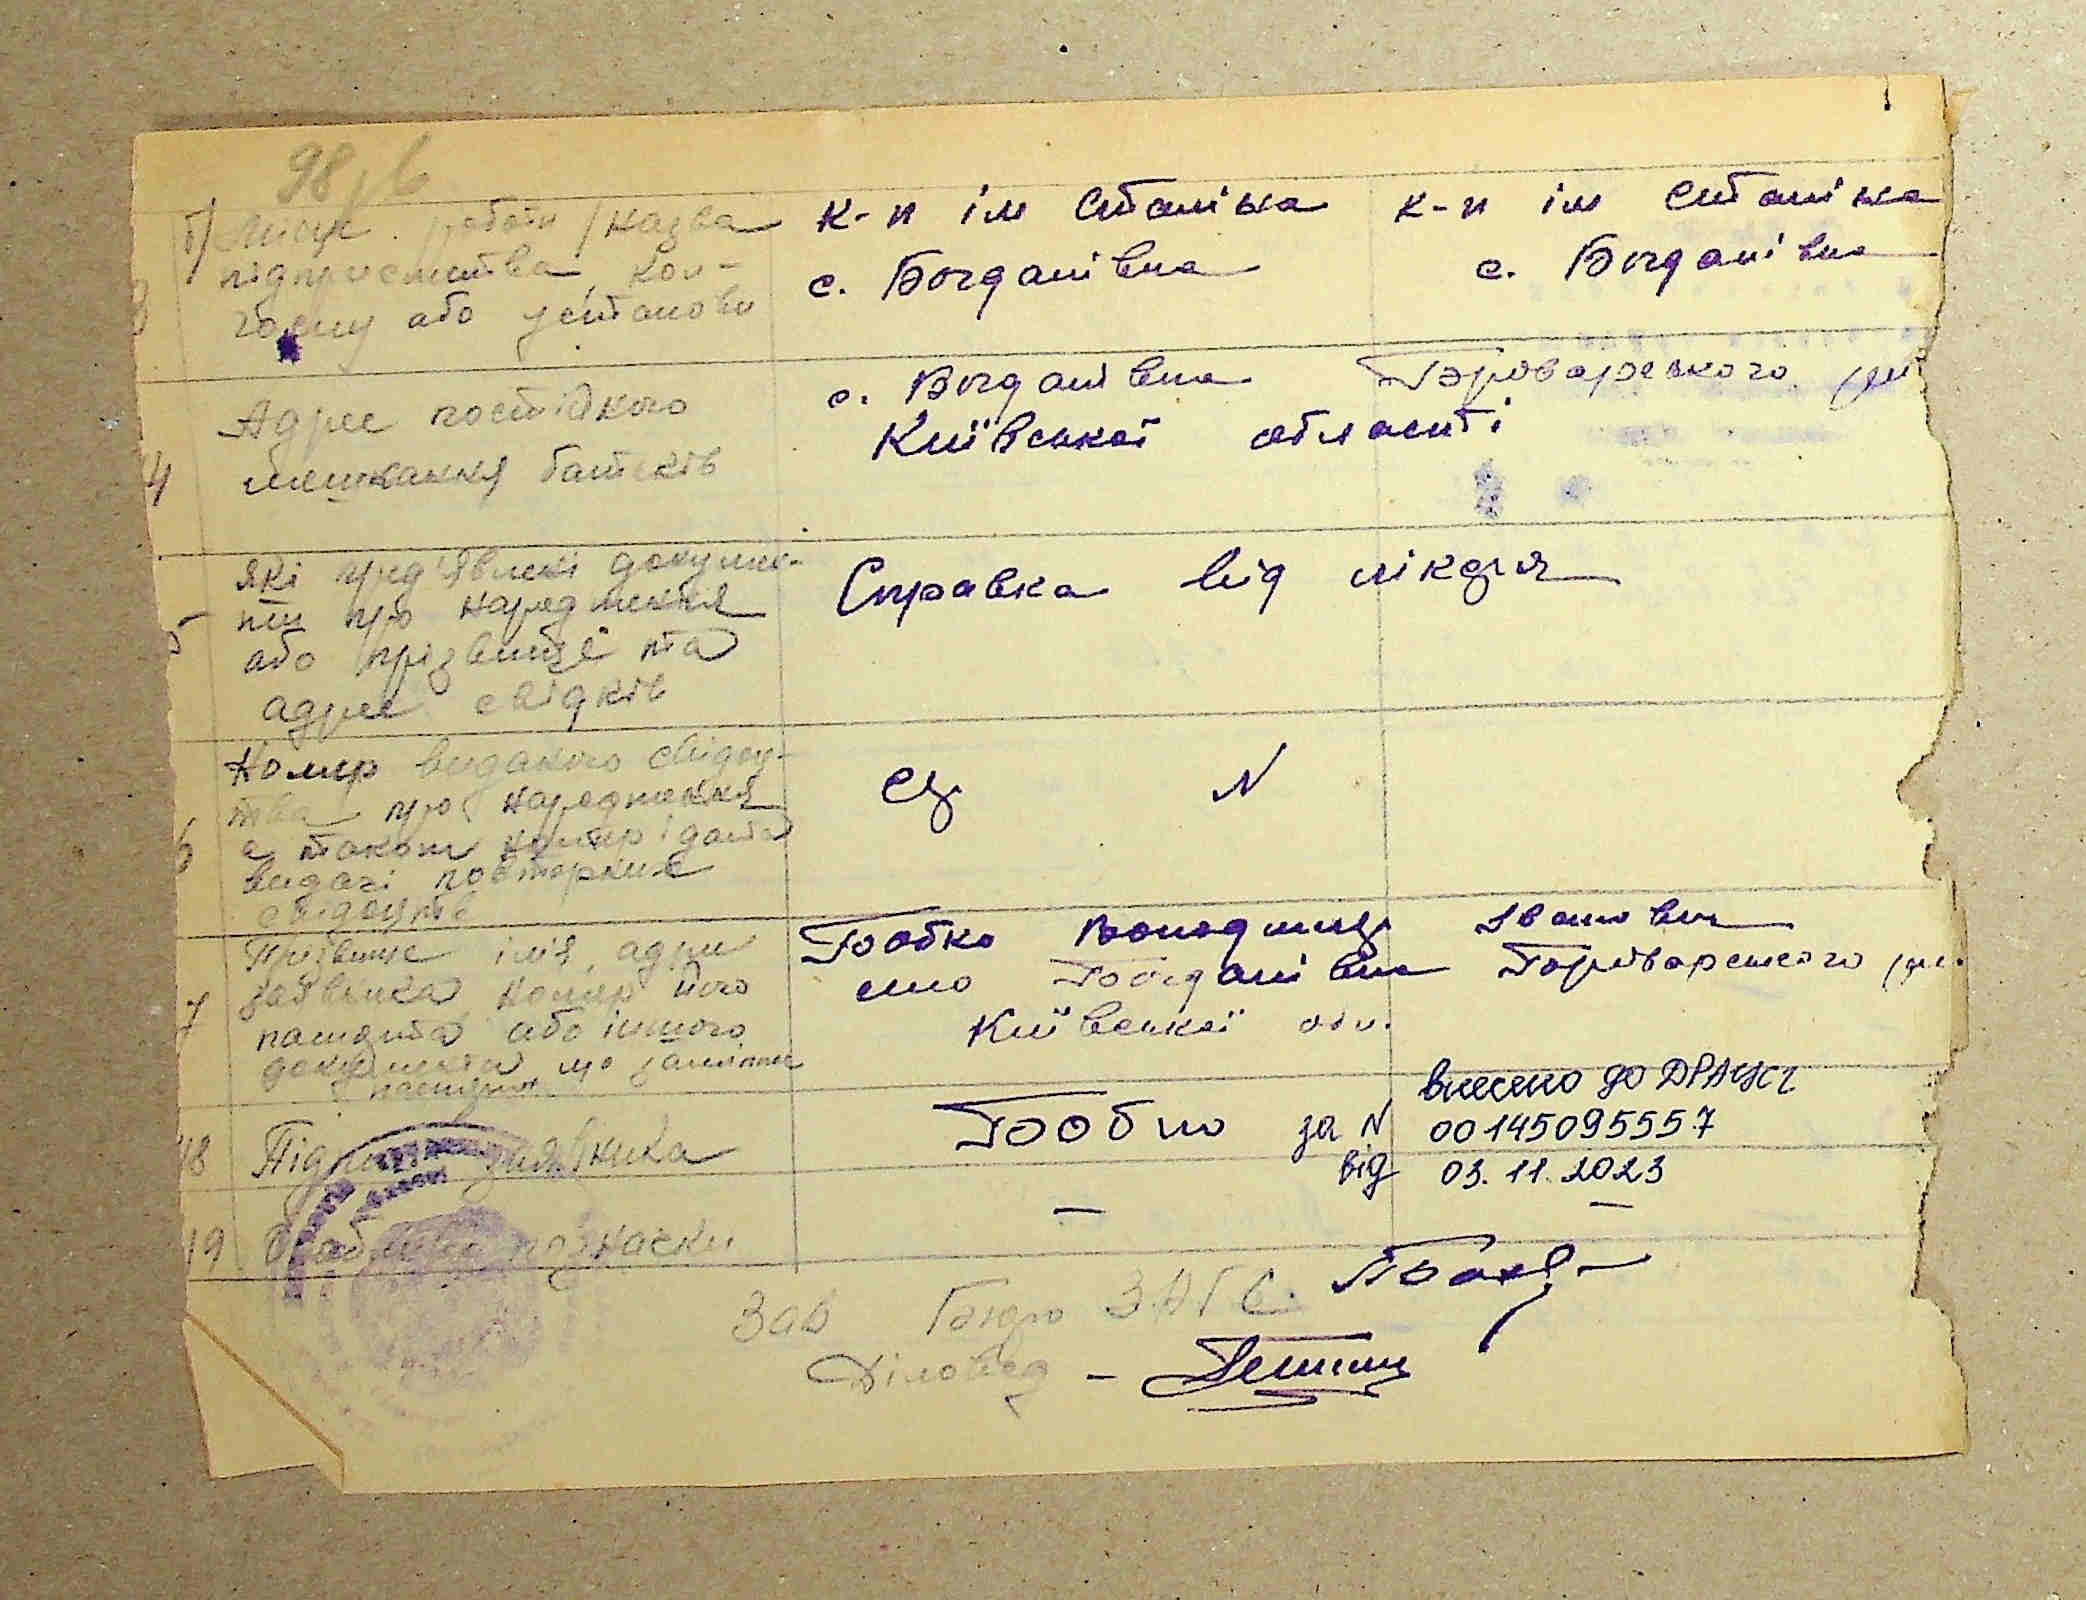 98
б) Місце роботи /назва к-п ім Сталіна к-п ім Сталіна
підприємства, кол- с. Богданівка с. Богданівка
госпу або установи
4 Адрес постійного с. Богданівка Броварського р-ну
мешкання батьків Київської області
5 Які пред'явлені докуме- Справка від лікаря
нти про народження
або прізвище та
адрес свідків
6 Номер виданого свідоц- СЦ N
тва про народження
а також номер і дата
видачі повторних
свідоцтв
7 Прізвище ім'я, адрес Бобко Володимир Іванович
заявника номер його село Богданівка Броварського р-н.
паспорта або іншого Київської обл.
документа що заміняє
паспорт
внесено до ДРАЦСг
18 Підпис заявника Бобко за N 00145095557
від 03.11.2023
19 Особливі познаски — —
Зав Бюро ЗАГС
Діловод -